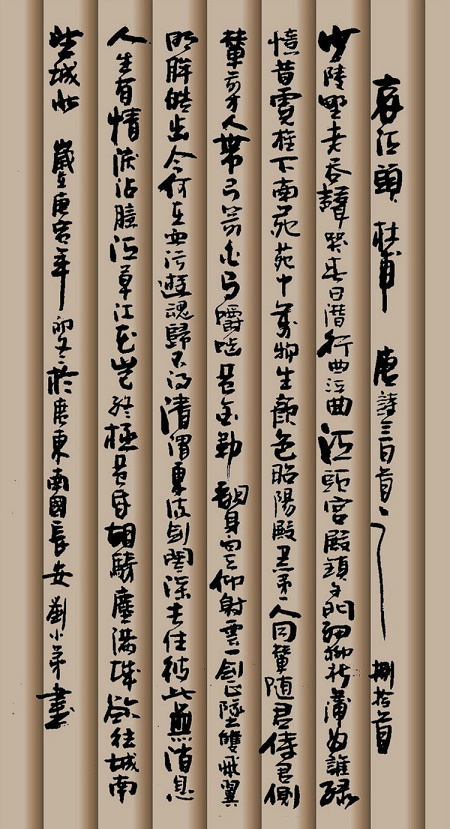 哀江頭 杜甫 唐詩三百首之 捌拾首
少陵野老吞聲哭春日潛行曲江曲江頭宮殿鎖千門細柳新蒲為誰綠
憶昔霓旌下南苑苑中萬物生顏色昭陽殿裏第一人同輦隨君侍君側
輦前才人帶弓箭白馬嚼嚙黃金勒翻身向天仰射雲一劍正墜雙飛翼
明眸皓齒今何在血污遊魂歸不得清渭東流劍閣深去住彼此無消息
人生有情淚沾臆江草江花豈終極黃昏胡騎塵滿城欲往城南
望城北 歲在庚寅年冬於廣東南國長安劉小弟書